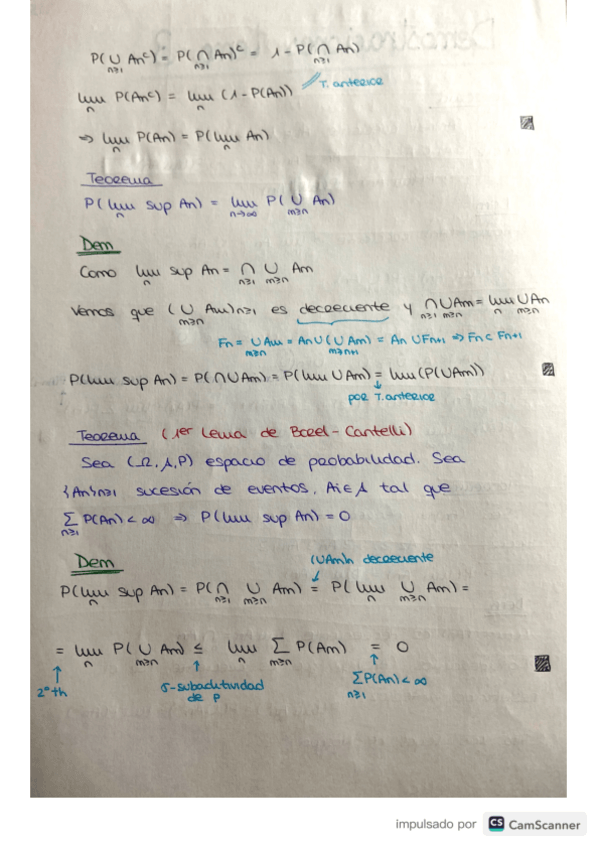 P(∪ Anᶜ) = P(∩ An)ᶜ = 1 - P(∩ An)
n≥1 n≥1 n≥1
lim P(Anᶜ) = lim (1 - P(An)) // T. anterior
n n
⇒ lim P(An) = P(lim An)
n n
Teorema
P(lim sup An) = lim P(∪ An)
n n→∞ m≥n
Dem
Como lim sup An = ∩ ∪ Am
n n≥1 m≥n
Vemos que (∪ Am)n≥1 es decreciente y ∩ ∪ Am = lim ∪ An
m≥n n≥1 m≥n n m≥n
Fn = ∪ Am = An ∪ (∪ Am) = An ∪ Fn+1 ⇒ Fn ⊂ Fn+1
m≥n m≥n+1
P(lim sup An) = P(∩ ∪ Am) = P(lim ∪ Am) = lim (P(∪ Am))
por T. anterior
Teorema (1er Lema de Borel - Cantelli)
Sea (Ω, A, P) espacio de probabilidad. Sea
{An}n≥1 sucesión de eventos, Ai ∈ A tal que
∑ P(An) < ∞ ⇒ P(lim sup An) = 0
n≥1
Dem
(∪Am)n decreciente
P(lim sup An) = P(∩ ∪ Am) = P(lim ∪ Am) =
n n≥1 m≥n n m≥n
= lim P(∪ Am) ≤ lim ∑ P(Am) = 0
n m≥n n m≥n
2º th
σ-subaditividad
de P
∑ P(An) < ∞
n≥1
impulsado por CS CamScanner